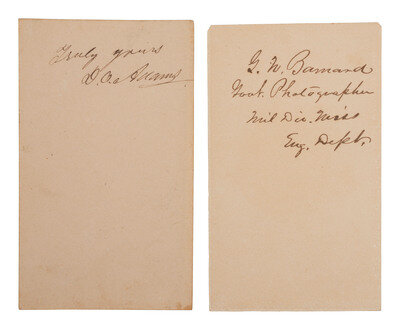 Truly yours
D. A. Adams
G. N. Barnard
Govt. Photographer
Mil Div. Miss
Eng. Dept.